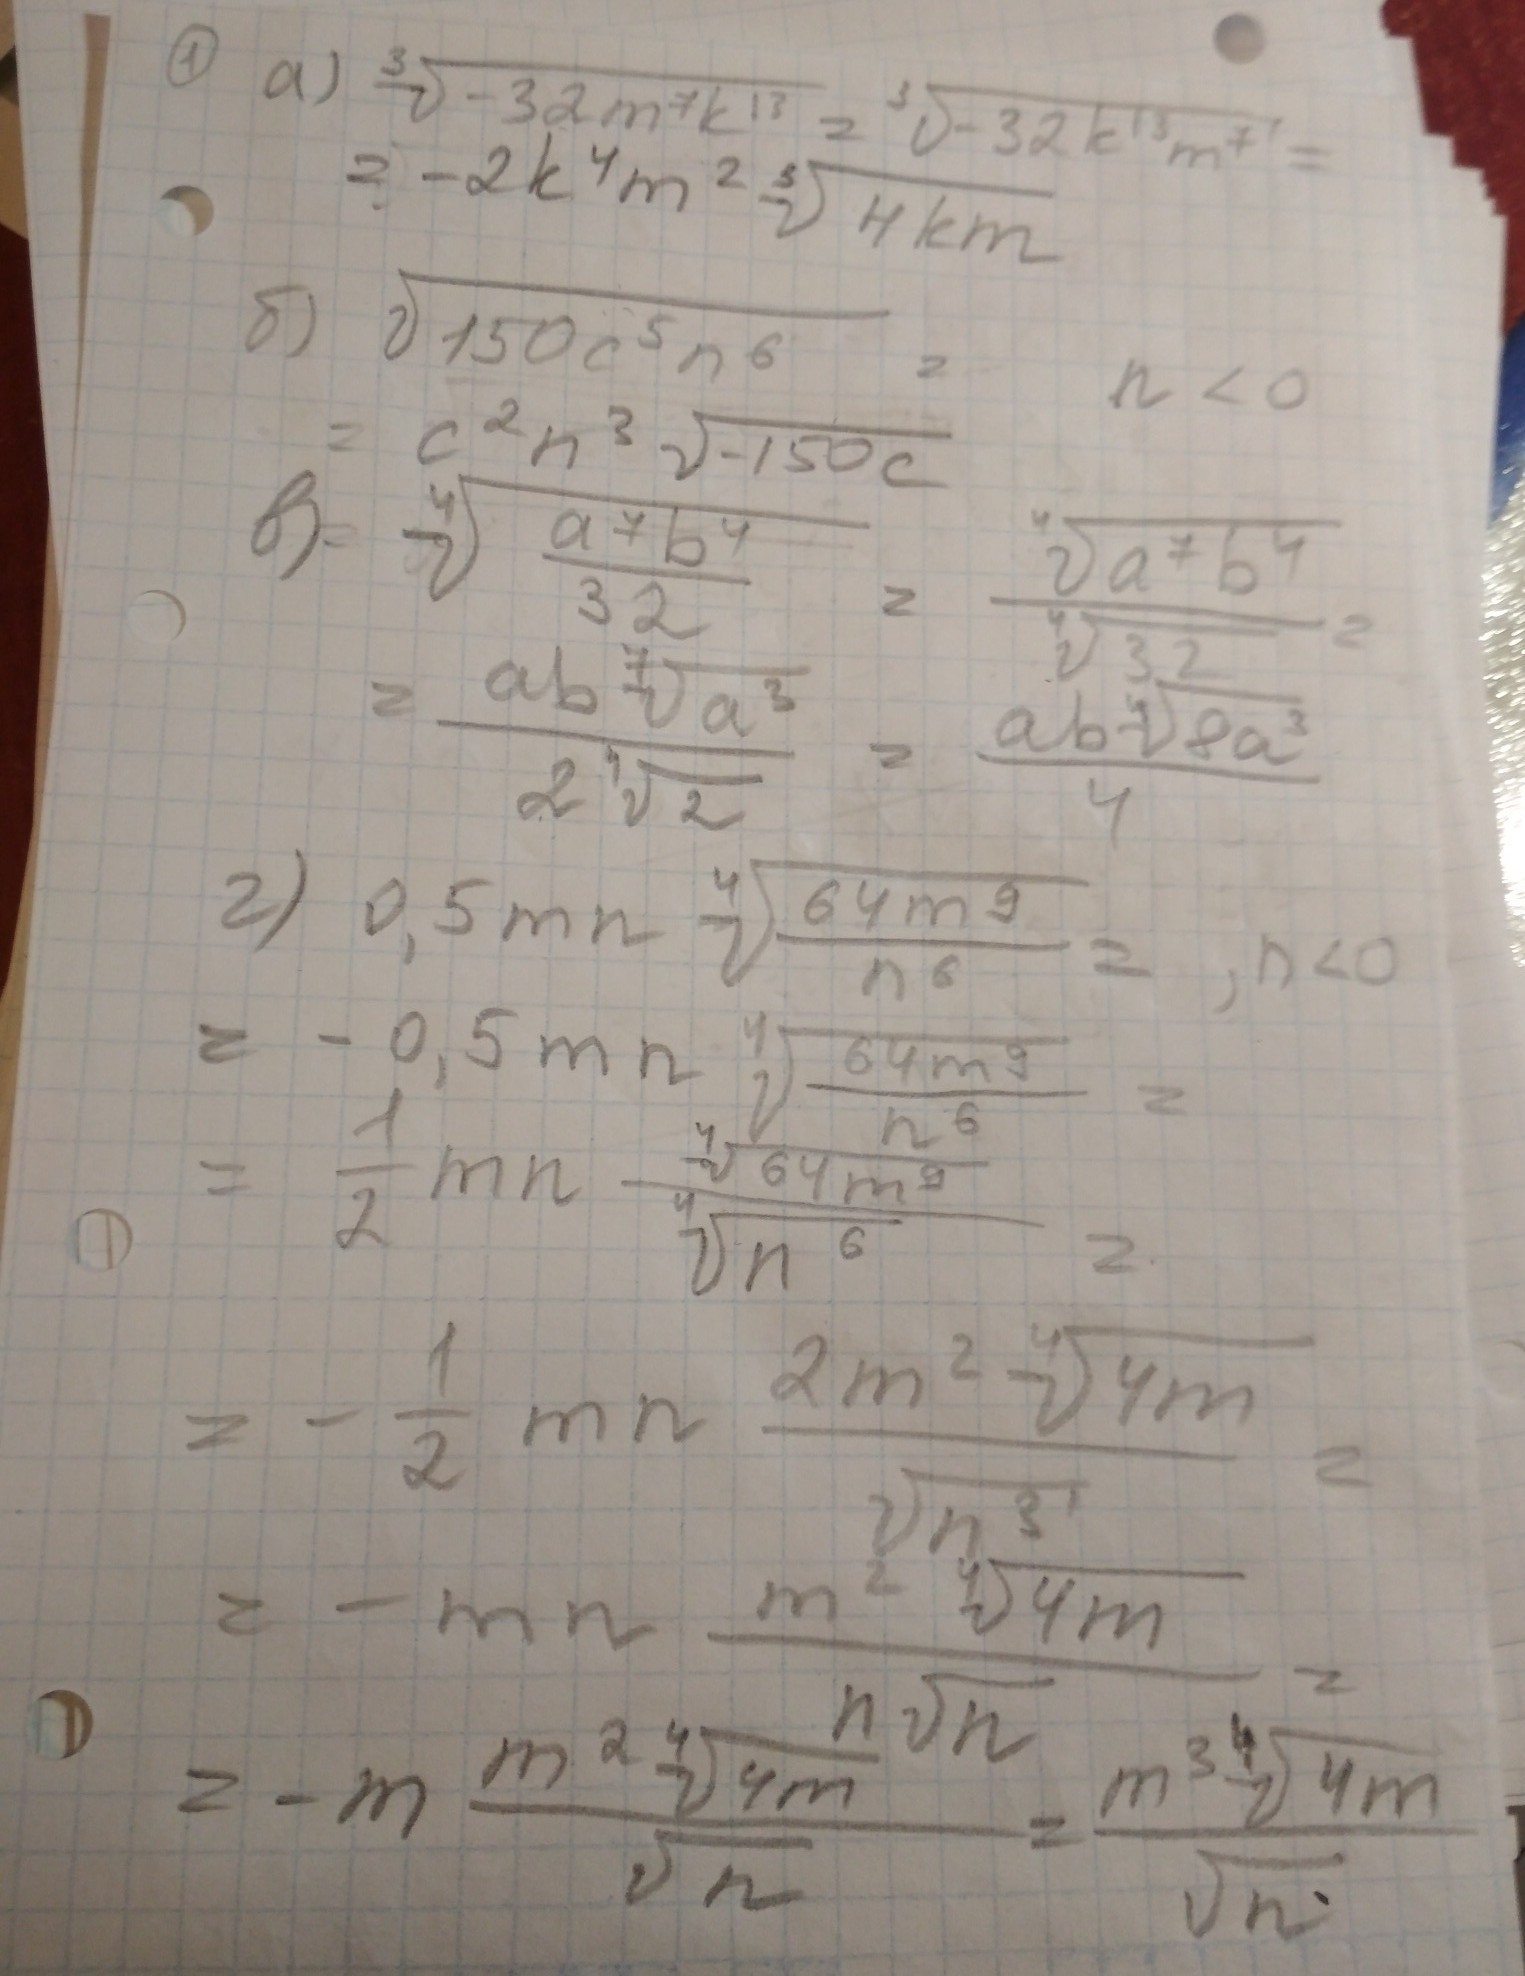 ① а) ∛(-32m⁷k¹³) = ∛(-32k¹³m⁷) =
= -2k⁴m² ∛(4km)
б) √(150c⁵n⁶) = n < 0
= c²n³ √(-150c)
в) = ⁴√(a⁷b⁴/32) = ⁴√(a⁷b⁴)/⁴√32 =
= ab ⁴√(a³)/(2 ⁴√2) = ab ⁴√(8a³)/4
г) 0,5mn ⁴√(64m⁹/n⁶) = , n<0
= -0,5mn ⁴√(64m⁹/n⁶) =
= 1/2 mn ⁴√(64m⁹)/⁴√(n⁶) =
= -1/2 mn 2m² ⁴√(4m)/√(n³) =
= -mn m² ⁴√(4m)/(n√n) =
= -m m² ⁴√(4m)/√n = m³ ⁴√(4m)/√n